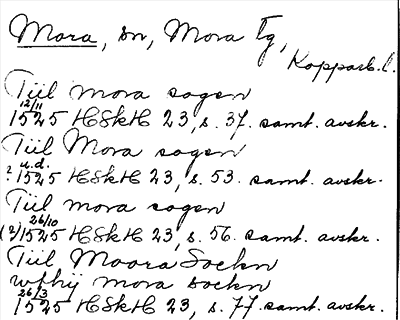 Mora, sn, Mora tg,
Kopparb. l.
Tiil mora sogen
12/11
1525 HSkH 23, s. 37. samt. avskr.
Tiil Mora sogen
u.d.
? 1525 HSkH 23, s. 53. samt. avskr.
Tiil mora sogen
26/10
(?) 1525 HSkH 23, s. 56. samt. avskr.
Tiil Moora Sockn
wthij mora sockn
26/3
1525 HSkH 23, s. 77. samt. avskr.